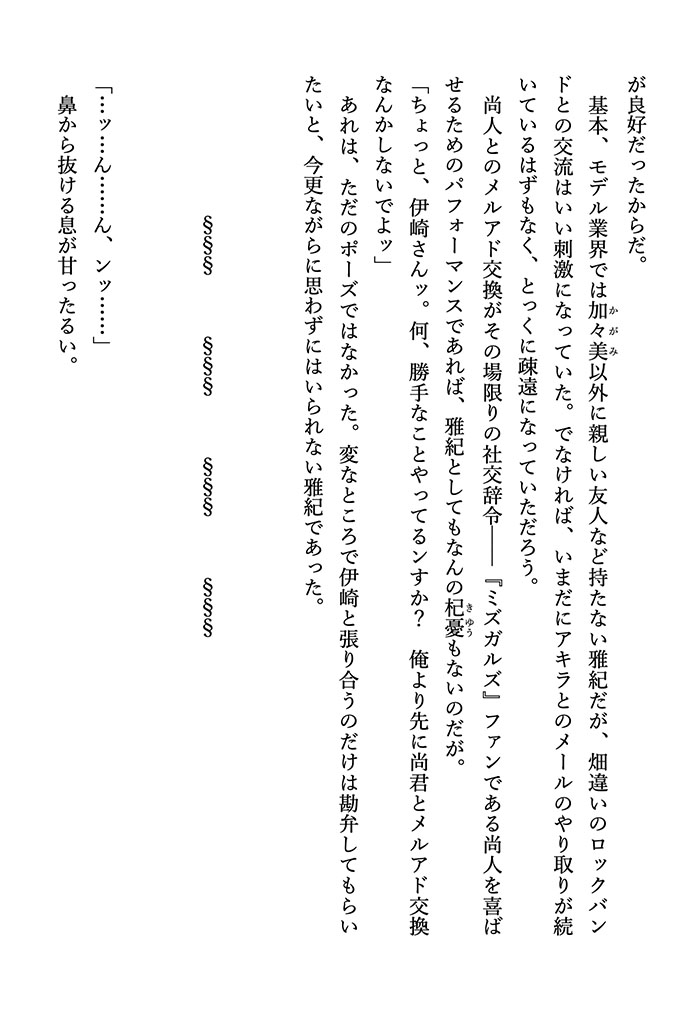 が良好だったからだ。
　基本、モデル業界では加々美以外に親しい友人など持たない雅紀だが、畑違いのロックバン
ドとの交流はいい刺激になっていた。でなければ、いまだにアキラとのメールのやり取りが続
いているはずもなく、とっくに疎遠になっていただろう。
　尚人とのメルアド交換がその場限りの社交辞令――『ミズガルズ』ファンである尚人を喜ば
せるためのパフォーマンスであれば、雅紀としてもなんの杞憂もないのだが。
「ちょっと、伊崎さんッ。何、勝手なことやってるンすか？　俺より先に尚君とメルアド交換
なんかしないでよッ」
　あれは、ただのポーズではなかった。変なところで伊崎と張り合うのだけは勘弁してもらい
たいと、今更ながらに思わずにはいられない雅紀であった。
§§§　　§§§　　§§§　　§§§
「…ッ…ん……ん、ンッ……」
　鼻から抜ける息が甘ったるい。